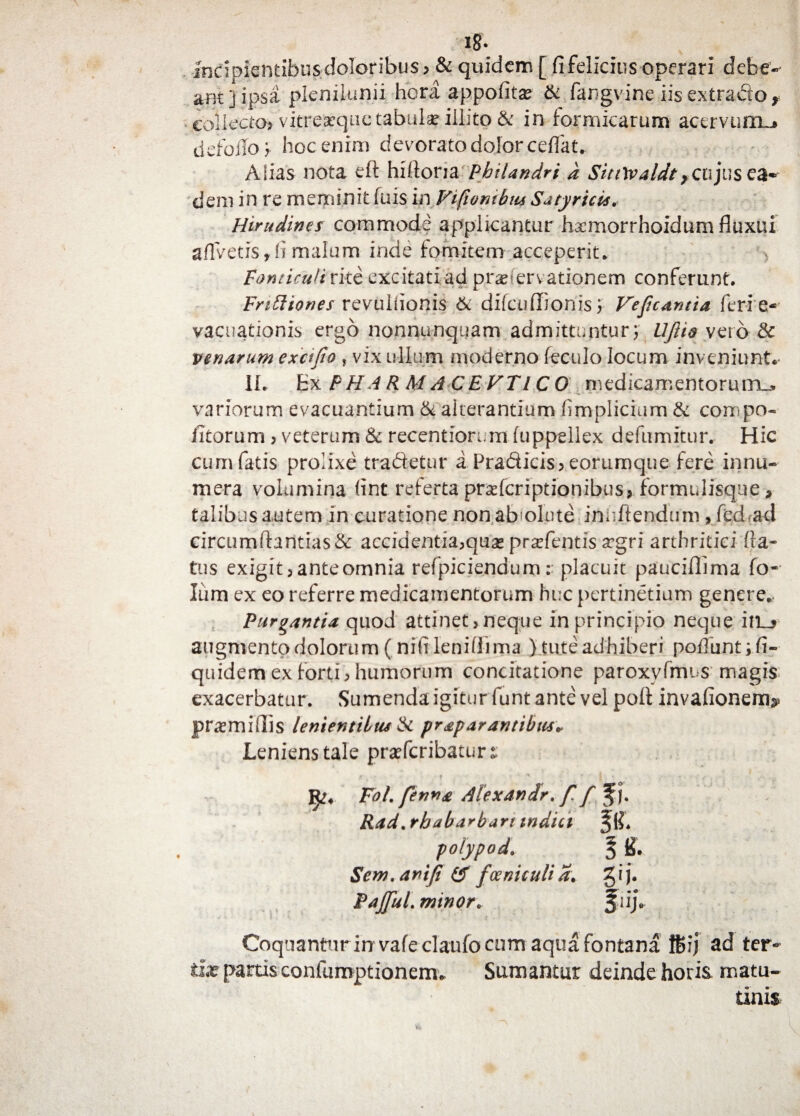 18.
incipientibus doloribus, & quidem [ si felicius operari debe-
ant ] ipsâ plenilunii horâ appositæ & sangvine iis extracto,
collecto, vitreæque tabulæ illito & in formicarum acervum
defosso; hoc enim devorato dolor cessat.
Alias nota est historia Philandri à Sittwaldt, cujus ea-
dem in re meminit suis in Visionibus Satyricis.
Hirudines commodè applicantur hæmorrhoidum fluxui
assvetis, si malum indè fomitem acceperit.
Fonticuli ritè excitati ad præservationem conferunt.
Frictiones revulsionis & discussionis; Vesicantia seri e-
vacuationis ergò nonnunquam admittuntur; Ustio verò &
venarum excisio, vix ullum moderno seculo locum inveniunt.
II. Ex PHARMACEVTICO medicamentorum
variorum evacuantium & alterantium simplicium & compo-
sitorum, veterum & recentiorum suppellex desumitur. Hic
cum satis prolixè tractetur à Practicis, eorumque ferè innu-
mera volumina sint referta præscriptionibus, formulisque,
talibus autem in curatione non absolutè insistendum, sed ad
circumstantias & accidentia, quæ præsentis ægri arthritici sta-
tus exigit, ante omnia respiciendum: placuit paucissima so-
lùm ex eo referre medicamentorum huc pertinétium genere.
Purgantia quod attinet, neque in principio neque in
augmento dolorum ( nisi lenissima ) tutè adhiberi possunt; si-
quidem ex forti, humorum concitatione paroxysmus magis
exacerbatur. Sumenda igitur sunt antè vel post invasionem,
præmissis lenientibus & præparantibus.
Leniens tale præscribatur:
℞. Fol. sennæ Alexandr. s. s ℥j.
Rad. rhabarbari indici ℥ß.
polypod. ℥ ß.
Sem. anisi & fœniculi ā. ʒij.
Passul. minor. ℥iij.
Coquantur in vase clauso cum aquâ fontanâ ℔ij ad ter-
tiæ partis consumptionem. Sumantur deinde horis matu-
tinis